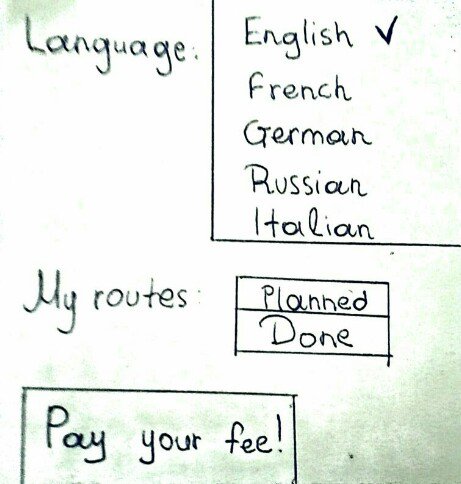 Language: English ✓
French
German
Russian
Italian
My routes: Planned
Done
Pay your fee!